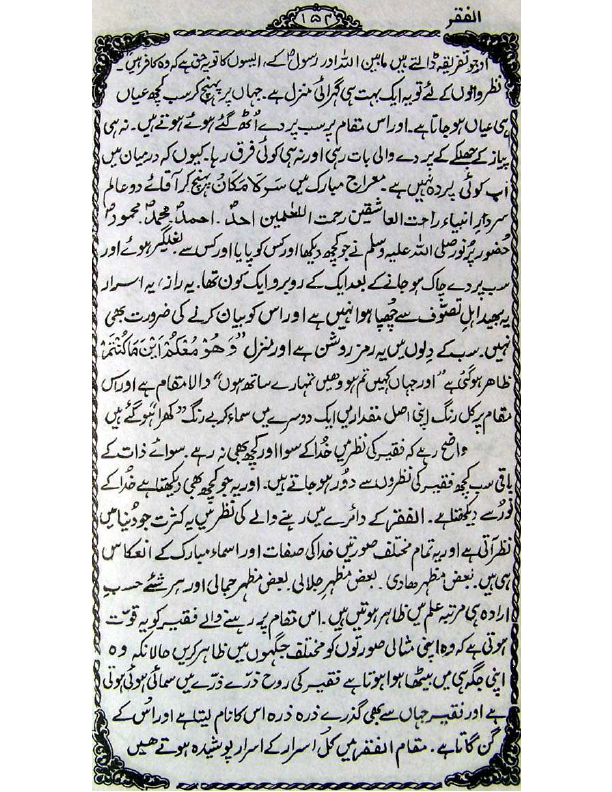 الفقر
۱۵۲
اور جو تفریقہ ڈالتے ہیں مابین اللہ اور رسولؐ کے، ایسوں کا تو یہ حق ہے کہ وہ کافر ہیں۔
نظر والوں کے لئے تو یہ ایک بہت ہی گہرائی منزل ہے۔ جہاں پر پہنچ کر سب کچھ عیاں
ہی عیاں ہو جاتا ہے۔ اور اس مقام پر سب پردے اُٹھ گئے ہوئے ہوتے ہیں۔ نہ ہی
پیاز کے چھلکے کے پردے والی بات رہی اور نہ ہی کوئی فرق رہا۔ کیوں کہ درمیان میں
اب کوئی پردہ نہیں ہے۔ معراج مبارک میں سرِ لامکاں پہنچ کر آقائے دو عالم
سردارِ انبیاء راحت العاشقین رحمت اللعٰلمین احدؐ۔ احمدؐ۔ محمدؐ۔ محمودؐ
حضور پُر نور صلی اللہ علیہ وسلم نے جو کچھ دیکھا اور کس کو پایا اور کس سے بغلگیر ہوئے اور
سب پردے چاک ہو جانے کے بعد ایک کے روبرو ایک کون تھا۔ یہ راز، یہ اسرار
یہ بھید اہلِ تصوّف سے چھپا ہوا نہیں ہے اور اس کو بیان کرنے کی ضرورت بھی
نہیں۔ سب کے دلوں میں یہ رمز روشن ہے اور منزل ”وَهُوَ مَعَكُمْ اَيْنَ مَا كُنْتُمْ“
ظاہر ہو گئی ہے ”اور جہاں کہیں تم ہو وہیں تمہارے ساتھ ہوں“ والا مقام ہے اور اس
مقام پر کل رنگ اپنی اصل مقدار میں ایک دوسرے میں سما کر بے رنگ ”کھرا“ ہو گئے ہیں
واضح رہے کہ فقیر کی نظر میں خُدا کے سوا اور کچھ بھی نہ رہے۔ سوائے ذات کے
باقی سب کچھ فقیر کی نظروں سے دور ہو جاتے ہیں۔ اور یہ جو کچھ بھی دیکھتا ہے خُدا کے
نُور سے دیکھتا ہے۔ الفقر کے دائرے میں رہنے والے کی نظر میں یہ کثرت جو دُنیا میں
نظر آتی ہے اور یہ تمام مختلف صورتیں خدا کی صفات اور اسماء مبارک کے انعکاس
ہی ہیں۔ بعض مظہر ھادی۔ بعض مظہرِ جلالی۔ بعض مظہر جمالی اور ہر شئے حسبِ
ارادہ ہی مرتبہ علم میں ظاہر ہوتیں ہیں۔ اس مقام پر رہنے والے فقیر کو یہ قوّت
ہوتی ہے کہ وہ اپنی مثالی صورتوں کو مختلف جگہوں میں ظاہر کریں حالانکہ وہ
اپنی جگہ ہی میں بیٹھا ہوا ہوتا ہے فقیر کی روح ذرّے ذرّے میں سمائی ہوئی ہوتی
ہے اور فقیر جہاں سے بھی گذرے ذرہ ذرہ اس کا نام لیتا ہے اور اُس کے
گن گاتا ہے۔ مقام الفقر میں کل اسرار کے اسرار پوشیدہ ہوتے ھیں